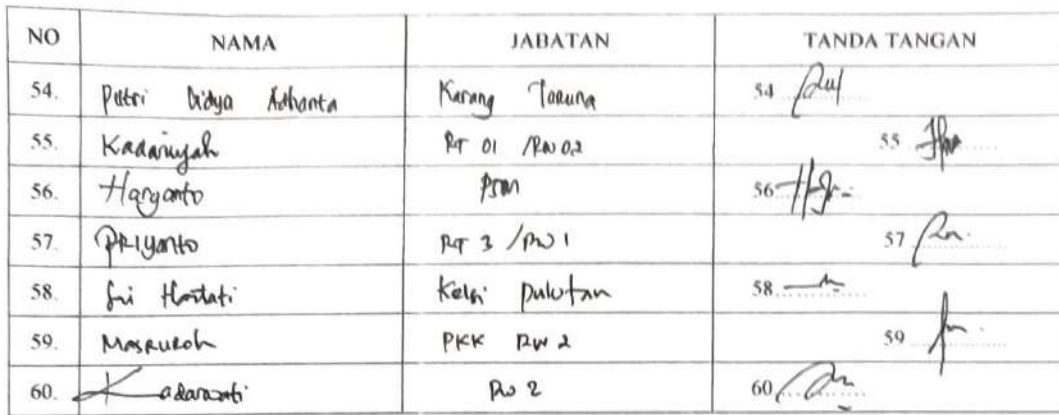 NO NAMA JABATAN TANDA TANGAN
54. Putri Didya Adhanta Karang Taruna 54
55. Kadariyah RT 01 /RW 02 55
56. Haryanto PSM 56
57. PRIYanto RT 3 /RW 1 57
58. Sri Hartati Pulutan 58
59. MasRuRoh PKK RW 2 59
60. Kadarwati RW 2 60